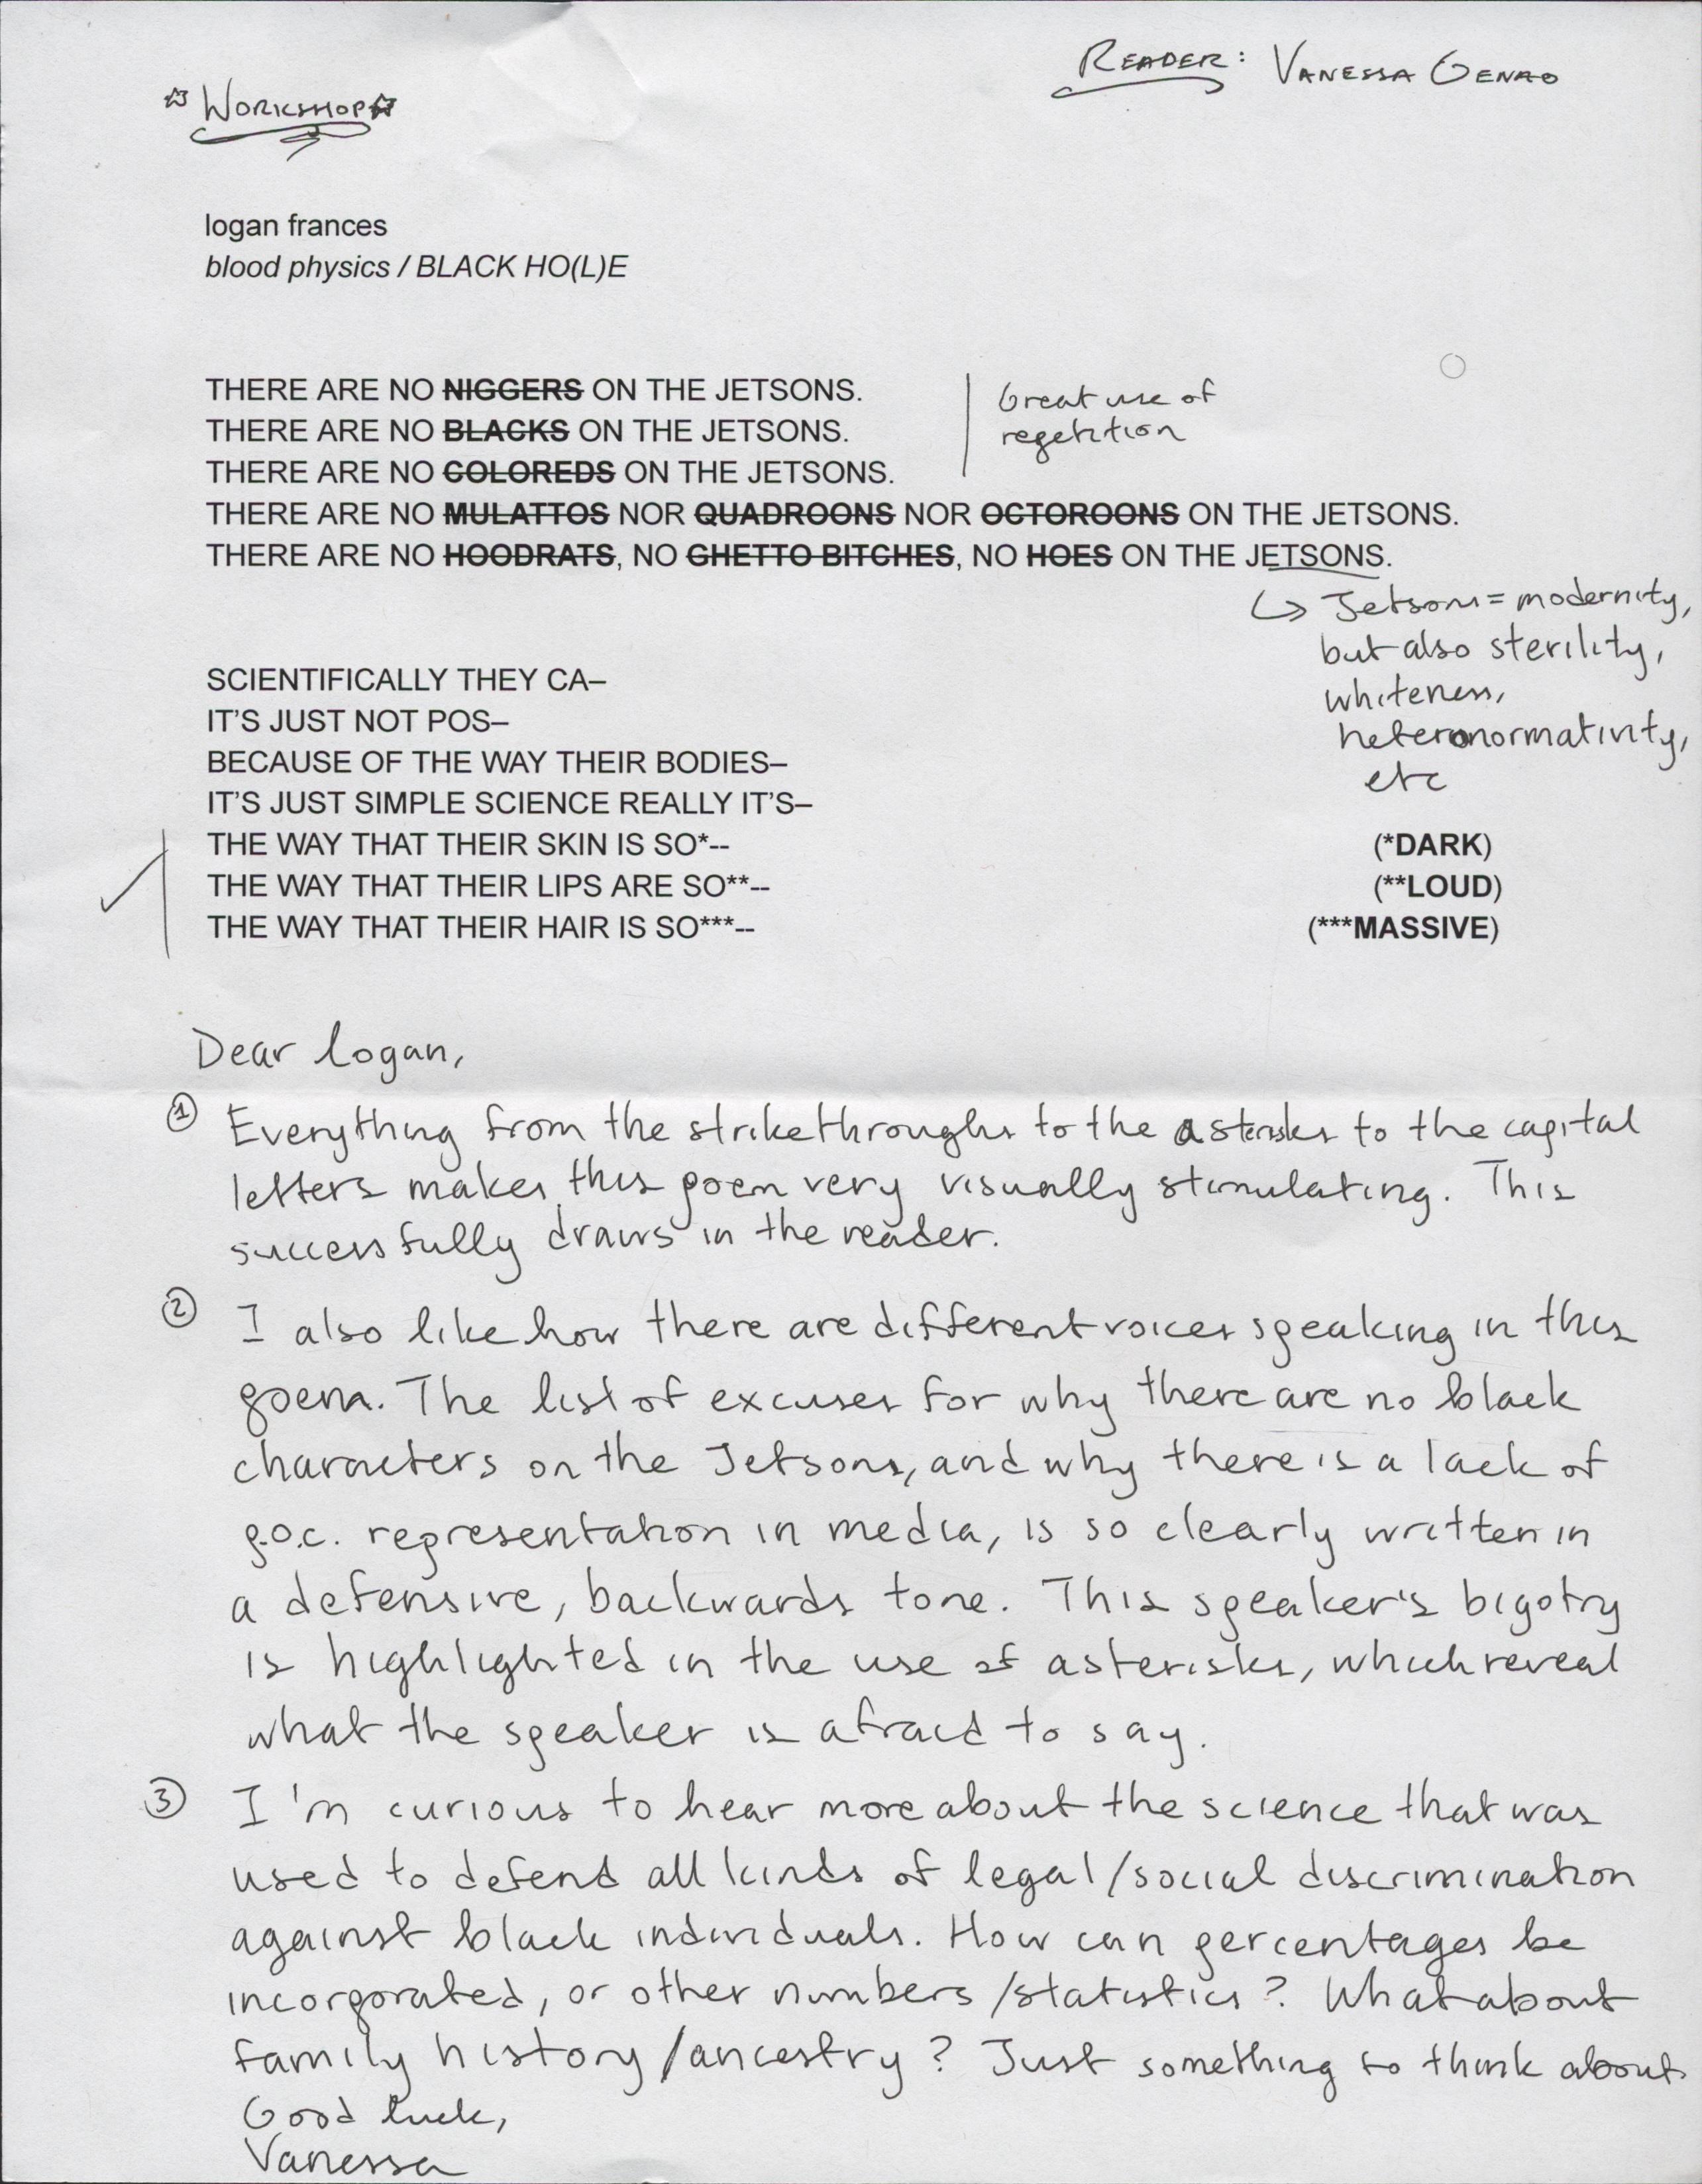 ☆ WORKSHOP ☆
READER: VANESSA GENAO
logan frances
blood physics / BLACK HO(L)E
THERE ARE NO NIGGERS ON THE JETSONS.
THERE ARE NO BLACKS ON THE JETSONS.
THERE ARE NO COLOREDS ON THE JETSONS.
Great use of
repetition
THERE ARE NO MULATTOS NOR QUADROONS NOR OCTOROONS ON THE JETSONS.
THERE ARE NO HOODRATS, NO GHETTO BITCHES, NO HOES ON THE JETSONS.
↪ Jetsons = modernity,
but also sterility,
whiteness,
heteronormativity,
etc
SCIENTIFICALLY THEY CA–
IT'S JUST NOT POS–
BECAUSE OF THE WAY THEIR BODIES–
IT'S JUST SIMPLE SCIENCE REALLY IT'S–
THE WAY THAT THEIR SKIN IS SO*-- (*DARK)
THE WAY THAT THEIR LIPS ARE SO**-- (**LOUD)
THE WAY THAT THEIR HAIR IS SO***-- (***MASSIVE)
Dear logan,
① Everything from the strikethroughs to the asterisks to the capital
letters makes this poem very visually stimulating. This
successfully draws in the reader.
② I also like how there are different voices speaking in this
poem. The list of excuses for why there are no black
characters on the Jetsons, and why there is a lack of
p.o.c. representation in media, is so clearly written in
a defensive, backwards tone. This speaker's bigotry
is highlighted in the use of asterisks, which reveal
what the speaker is afraid to say.
③ I'm curious to hear more about the science that was
used to defend all kinds of legal/social discrimination
against black individuals. How can percentages be
incorporated, or other numbers/statistics? What about
family history/ancestry? Just something to think about.
Good luck,
Vanessa